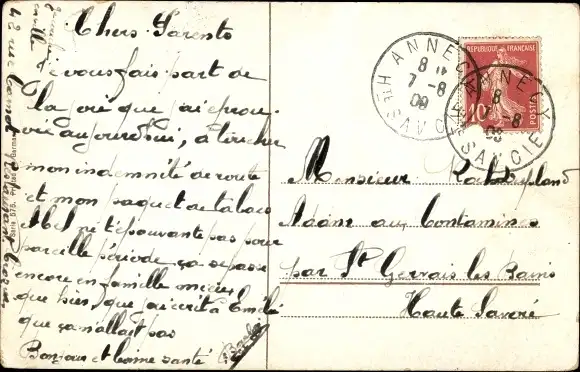 Chers Parents
Je vous fais part de
la joie que j'ai éprou-
vée aujourd'hui, à toucher
mon indemnité de route
et mon paquet de tabac
Abel ne t'épouvante pas pour
pareille période, ça se passe
encore en famille mieux
que hier, que j'ai écrit à Emile
que ça n'allait pas
Bonjour et bonne santé
ANNECY
8
7 - 8
09
HTE SAVOIE
REPUBLIQUE FRANÇAISE
10
POSTES
ANNECY
8
7 - 8
09
SAVOIE
Monsieur
Adam aux Contamines
par St Gervais les Bains
Haute Savoie